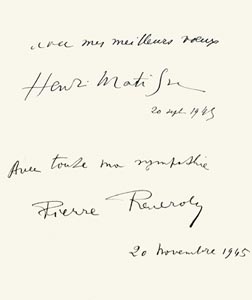 avec mes meilleurs vœux
Henri Matisse
20 sept. 1945
Avec toute ma sympathie
Pierre Reverdy
20 novembre 1945